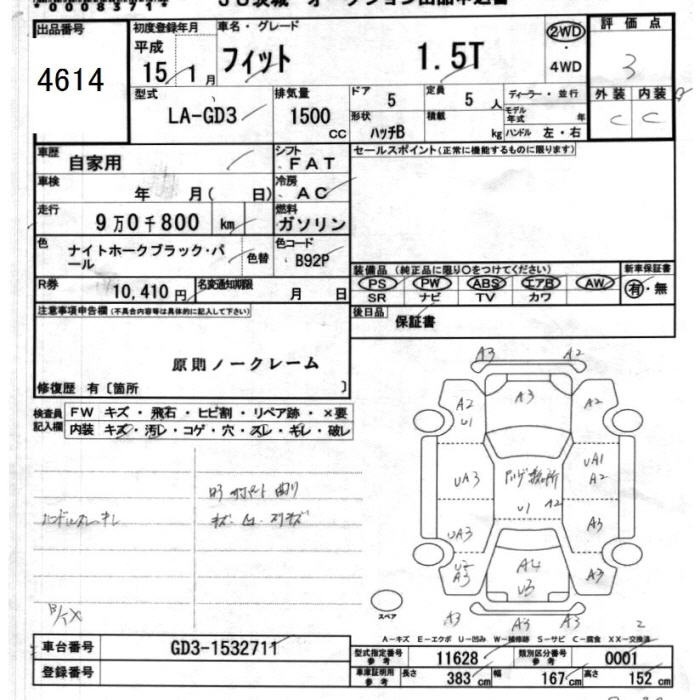 出品番号
4614
初度登録年月
平成
15 1月
車名・グレード
フィット 1.5T
2WD
・
4WD
評価点
3
外装 内装
C C
型式
LA-GD3
排気量
1500
CC
ドア 5
定員 5人
形状 ハッチB
積載 kg
ディーラー・並行
モデル年式 年
ハンドル 左・右
車歴
自家用
シフト
FAT
車検
年 月( 日)
冷房
AC
走行
9万0千800 km
燃料
ガソリン
色
ナイトホークブラック・パール
色替
色コード
B92P
R券
10,410円
名変通知期限
月 日
セールスポイント(正常に機能するものに限ります)
装備品(純正品に限り○をつけてください)
PS PW ABS エアB AW
SR ナビ TV カワ
新車保証書
有・無
後日品
保証書
注意事項申告欄(不具合内容等は具体的に記入して下さい)
原則ノークレーム
修復歴 有〔箇所 〕
検査員記入欄
FW キズ・飛石・ヒビ割・リペア跡・×要
内装 キズ・汚レ・コゲ・穴・スレ・キレ・破レ
A3 A2
A2 A3 A2
U1
UA3 UA1
A2
U1 A2
UA3 A3
U2 A4 A3
A3 U3
A3 A3 A3 2
スペア
A-キズ E-エクボ U-凹み W-補修跡 S-サビ C-腐食 XX-交換済
車台番号
GD3-1532711
登録番号
型式指定番号 参考
11628
類別区分番号 参考
0001
車庫証明用 参考
長さ 383cm 幅 167cm 高さ 152cm